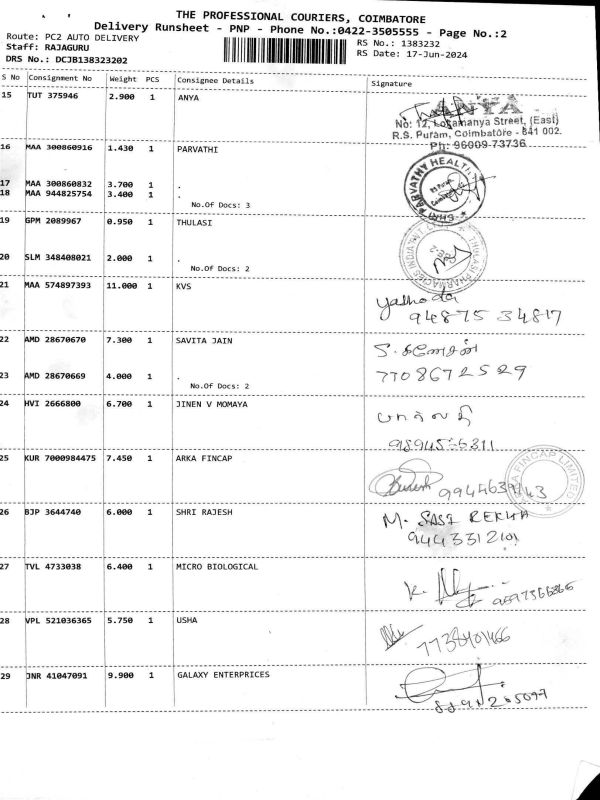 THE PROFESSIONAL COURIERS, COIMBATORE
Delivery Runsheet - PNP - Phone No.:0422-3505555 - Page No.:2
Route: PC2 AUTO DELIVERY
Staff: RAJAGURU
RS No.: 1383232
DRS No.: DCJB138323202
RS Date: 17-Jun-2024
S No Consignment No Weight PCS Consignee Details Signature
15 TUT 375946 2.900 1 ANYA
ANYA
No: 12, Logamanya Street, (East)
R.S. Puram, Coimbatore - 641 002.
Ph: 96009 73736
16 MAA 300860916 1.430 1 PARVATHI
17 MAA 300860832 3.700 1 .
18 MAA 944825754 3.400 1 .
No.Of Docs: 3
SHRI PARVATHY HEALTH
19 GPM 2089967 0.950 1 THULASI
20 SLM 348408021 2.000 1 .
No.Of Docs: 2
THULASI PHARMACIES INDIA
21 MAA 574897393 11.000 1 KVS
Yashoda
94875 34817
22 AMD 28670670 7.300 1 SAVITA JAIN
23 AMD 28670669 4.000 1 .
No.Of Docs: 2
7708672529
24 HVI 2666800 6.700 1 JINEN V MOMAYA
25 KUR 7000984475 7.450 1 ARKA FINCAP
FINCAP LIMITED
26 BJP 3644740 6.000 1 SHRI RAJESH
M. SASI REKHA
9443312101
27 TVL 4733038 6.400 1 MICRO BIOLOGICAL
28 VPL 521036365 5.750 1 USHA
29 JNR 41047091 9.900 1 GALAXY ENTERPRICES